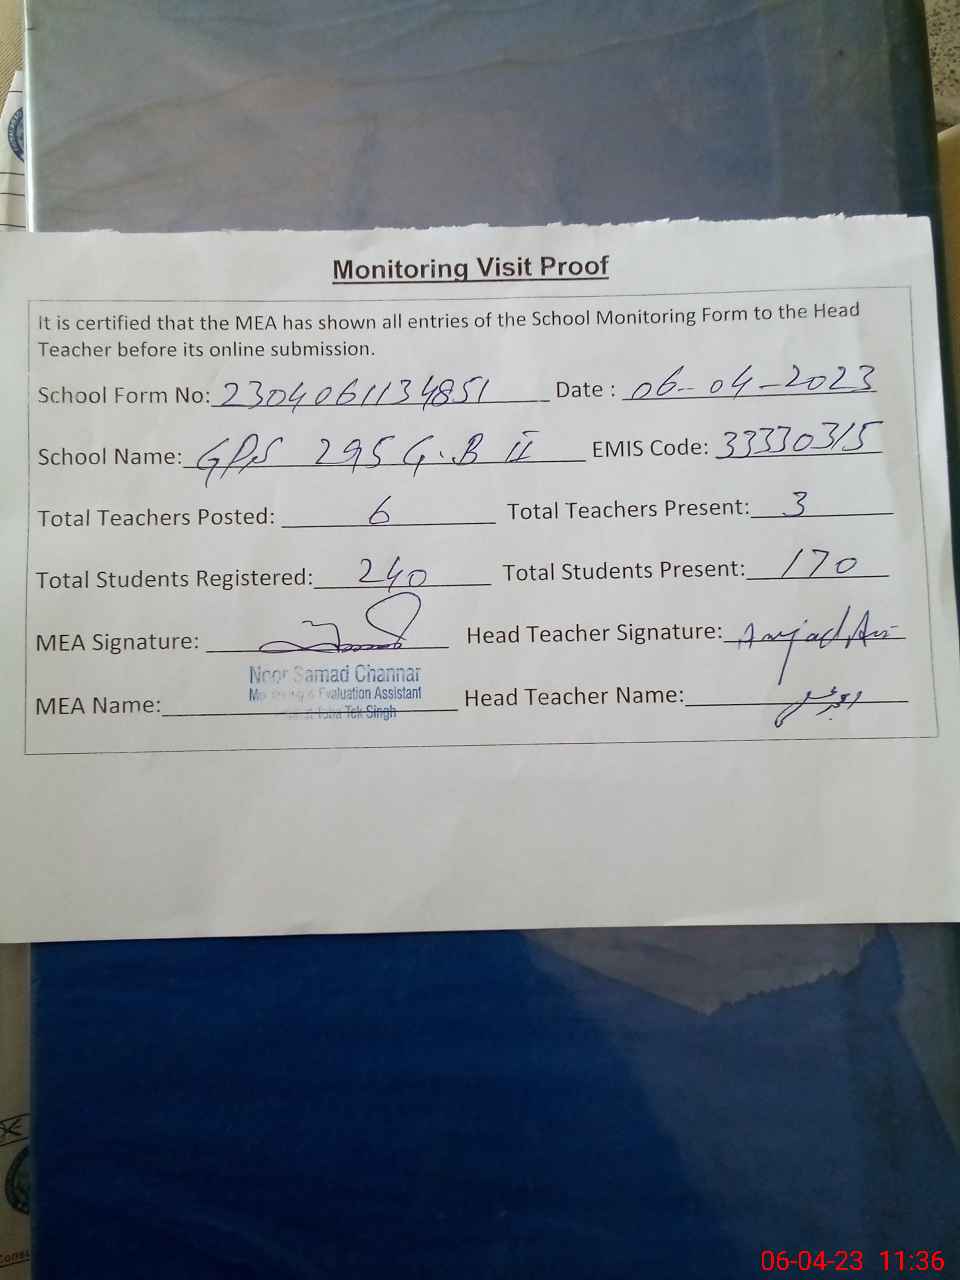 Monitoring Visit Proof
It is certified that the MEA has shown all entries of the School Monitoring Form to the Head
Teacher before its online submission.
School Form No: 2304061134851 Date : 06-04-2023
School Name: GPS 295 G.B II EMIS Code: 33330315
Total Teachers Posted: 6 Total Teachers Present: 3
Total Students Registered: 240 Total Students Present: 170
MEA Signature: Head Teacher Signature: Amjad Ali
Noor Samad Channar
Monitoring & Evaluation Assistant
MEA Name: Head Teacher Name:
Toba Tek Singh
06-04-23 11:36